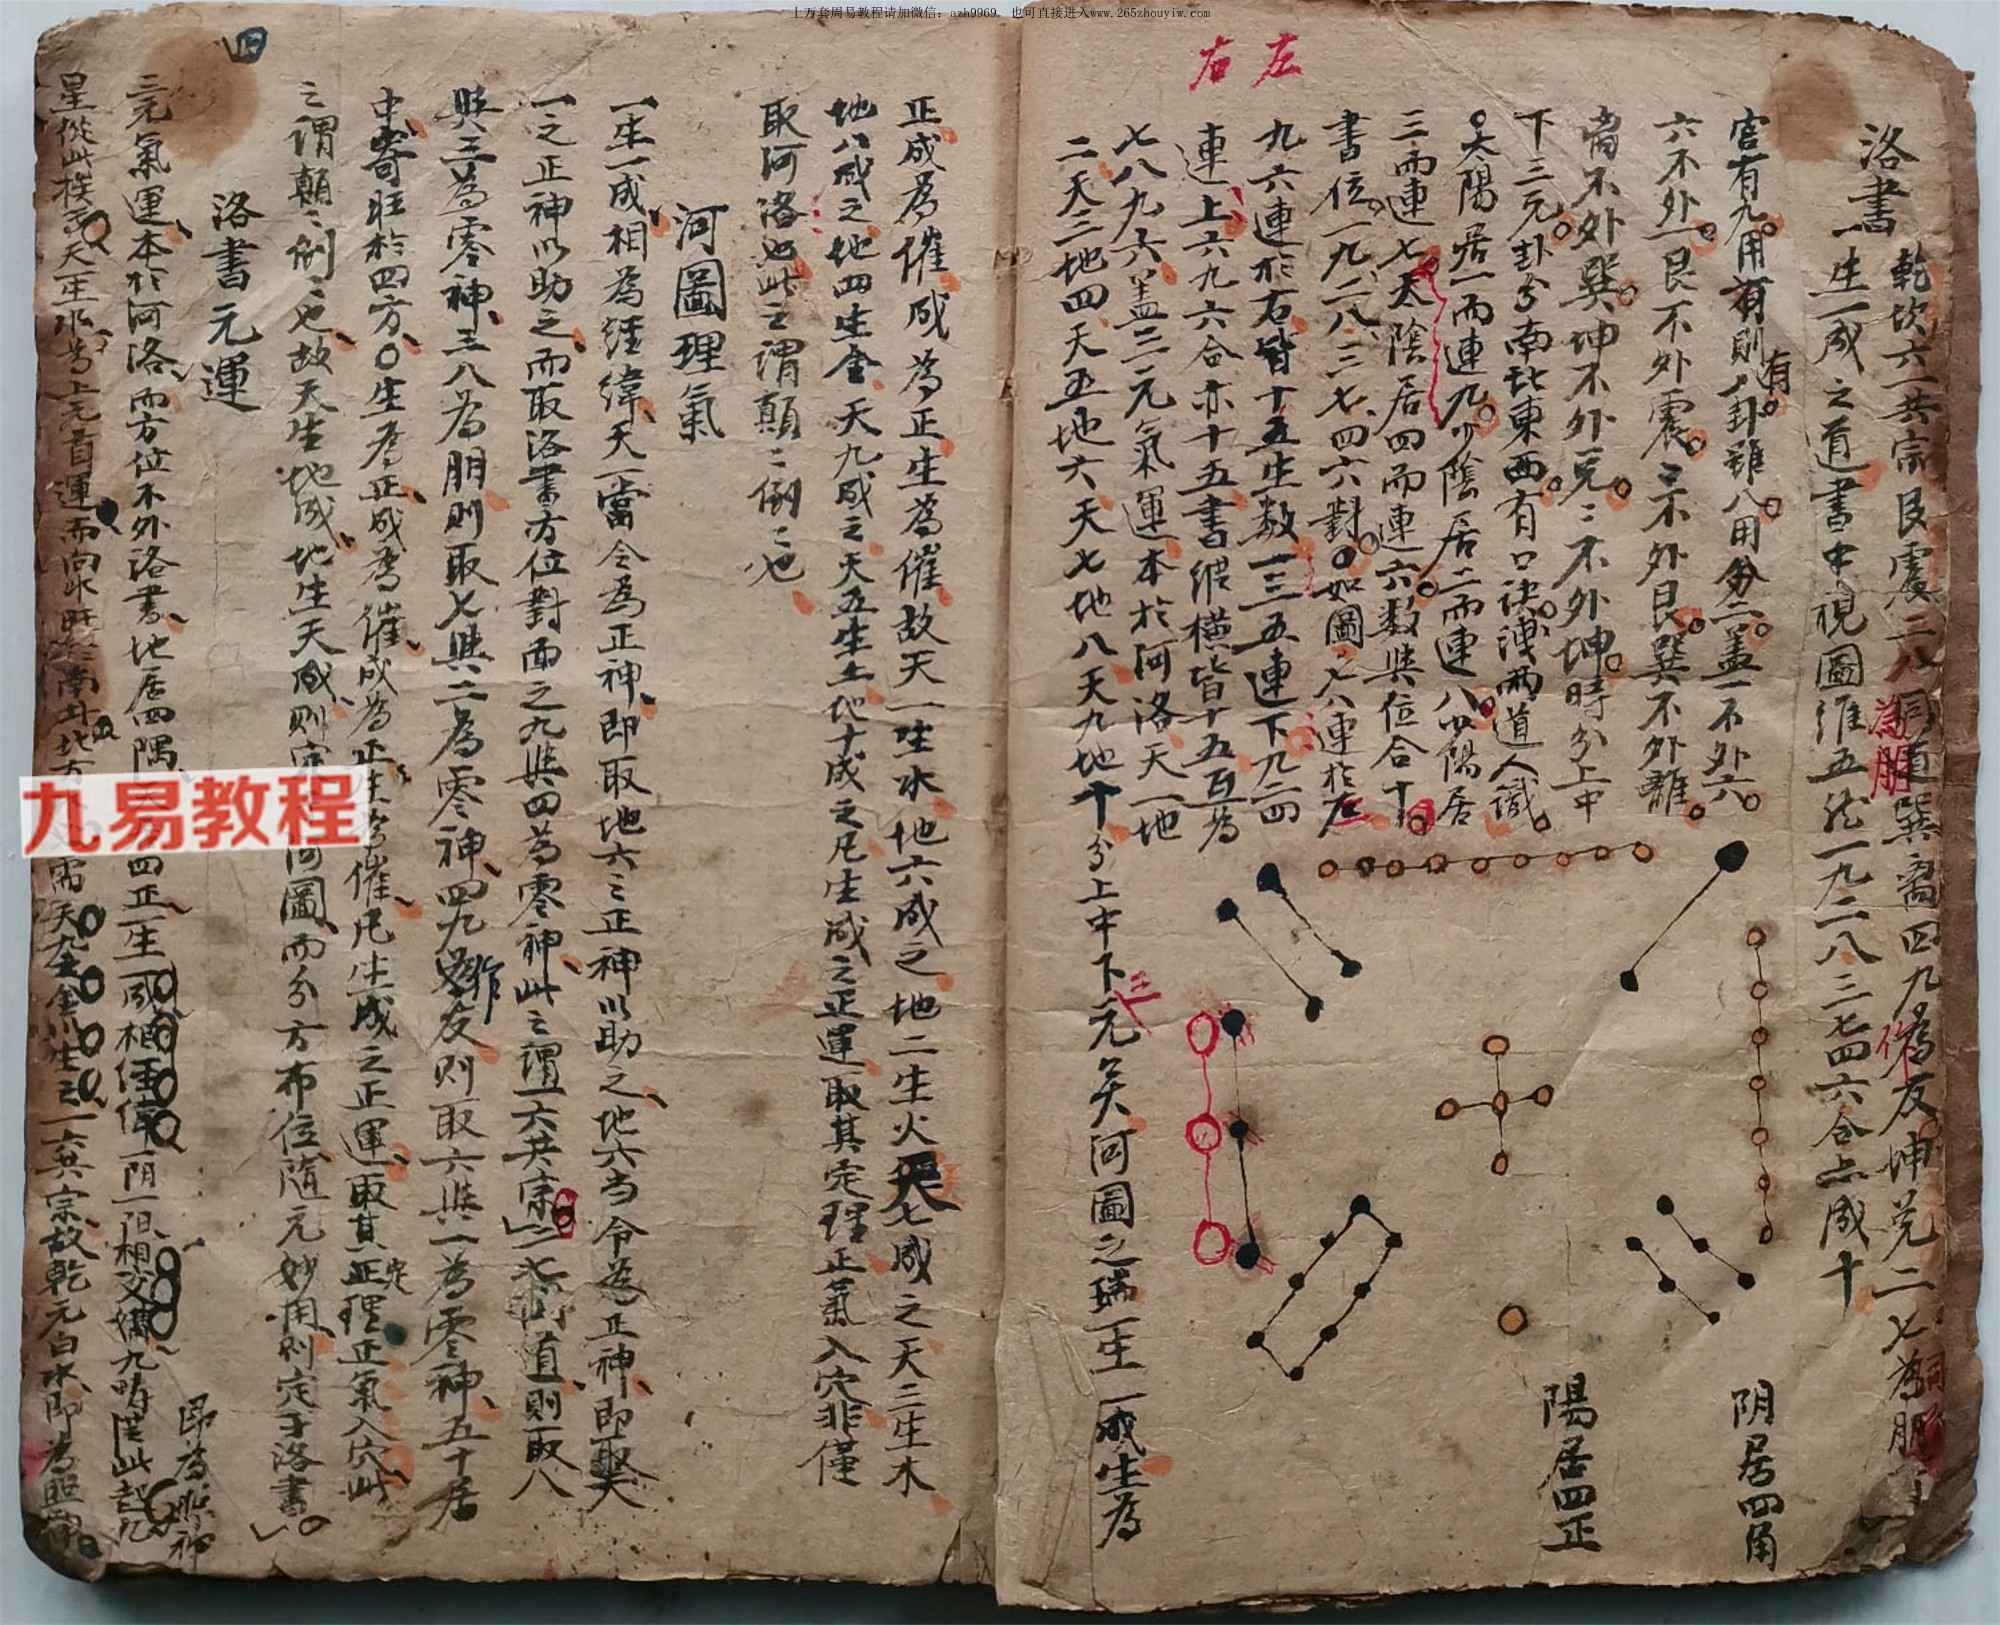 上万套周易教程请加微信：azh9969，也可直接进入www.265zhouyiw.com
右 左
洛書
乾坎六一共宗艮震三八為朋同道巽离四九為友坤兑二七為
一生一成之道書中視圖維五 一九二八三七四六合 成十
宫有九用有則八卦雖八用分二盖一不外六
六不外一艮不外震三不外艮巽不外離
離不外巽坤不外兑二不外坤時分上中
下三元卦分南北東西有口訣洩兩道人識
太陽居一而連九少陰居二而連八少陽居
三而連七太陰居四而連六数與位合十
書位一九二八三七四六對如圖 八連於左
九六連於右皆十五生数一三五連下九二四
連上六九六合亦十五書縱横皆十五互為
七八九六盖三元氣運本於河洛天一地
二天三地四天五地六天七地八天九地十分上中下元矣河圖之瑞一生一成生為
陰居四角
陽居四正
正成為催成為正生為催故天一生水地六成之地二生火天七成之天三生木
地八成之地四生金天九成之天五生土地十成之凡生成之正運取其定理正氣入穴非僅
取河洛也此之謂顛二倒二也
河圖理氣
一生一成相為經緯天一當令為正神即取地六之正神以助之地六当令為正神即取天
一之正神以助之而取洛書方位對面之九與四為零神此之謂一六共宗二七同道則取八
與三為零神三八為朋則取七與二為零神四九作友則取六與一為零神五十居
中寄旺於四方〇生為正成為催成為正生為催凡生成之正運取其定理正氣入穴此
之謂顛二倒二也故天生地成地生天成則 河圖而分方布位隨元妙用則定于洛書
洛書元運
三元氣運本於河洛而方位不外洛書地居四隅 四正一生一成相經 一陰一陽相交媾九疇 此起九
即為照神
星從此 天一生水為上元首運而向 南 北 天九 金 生之一六共宗故乾元白水即為照神
四
九易教程